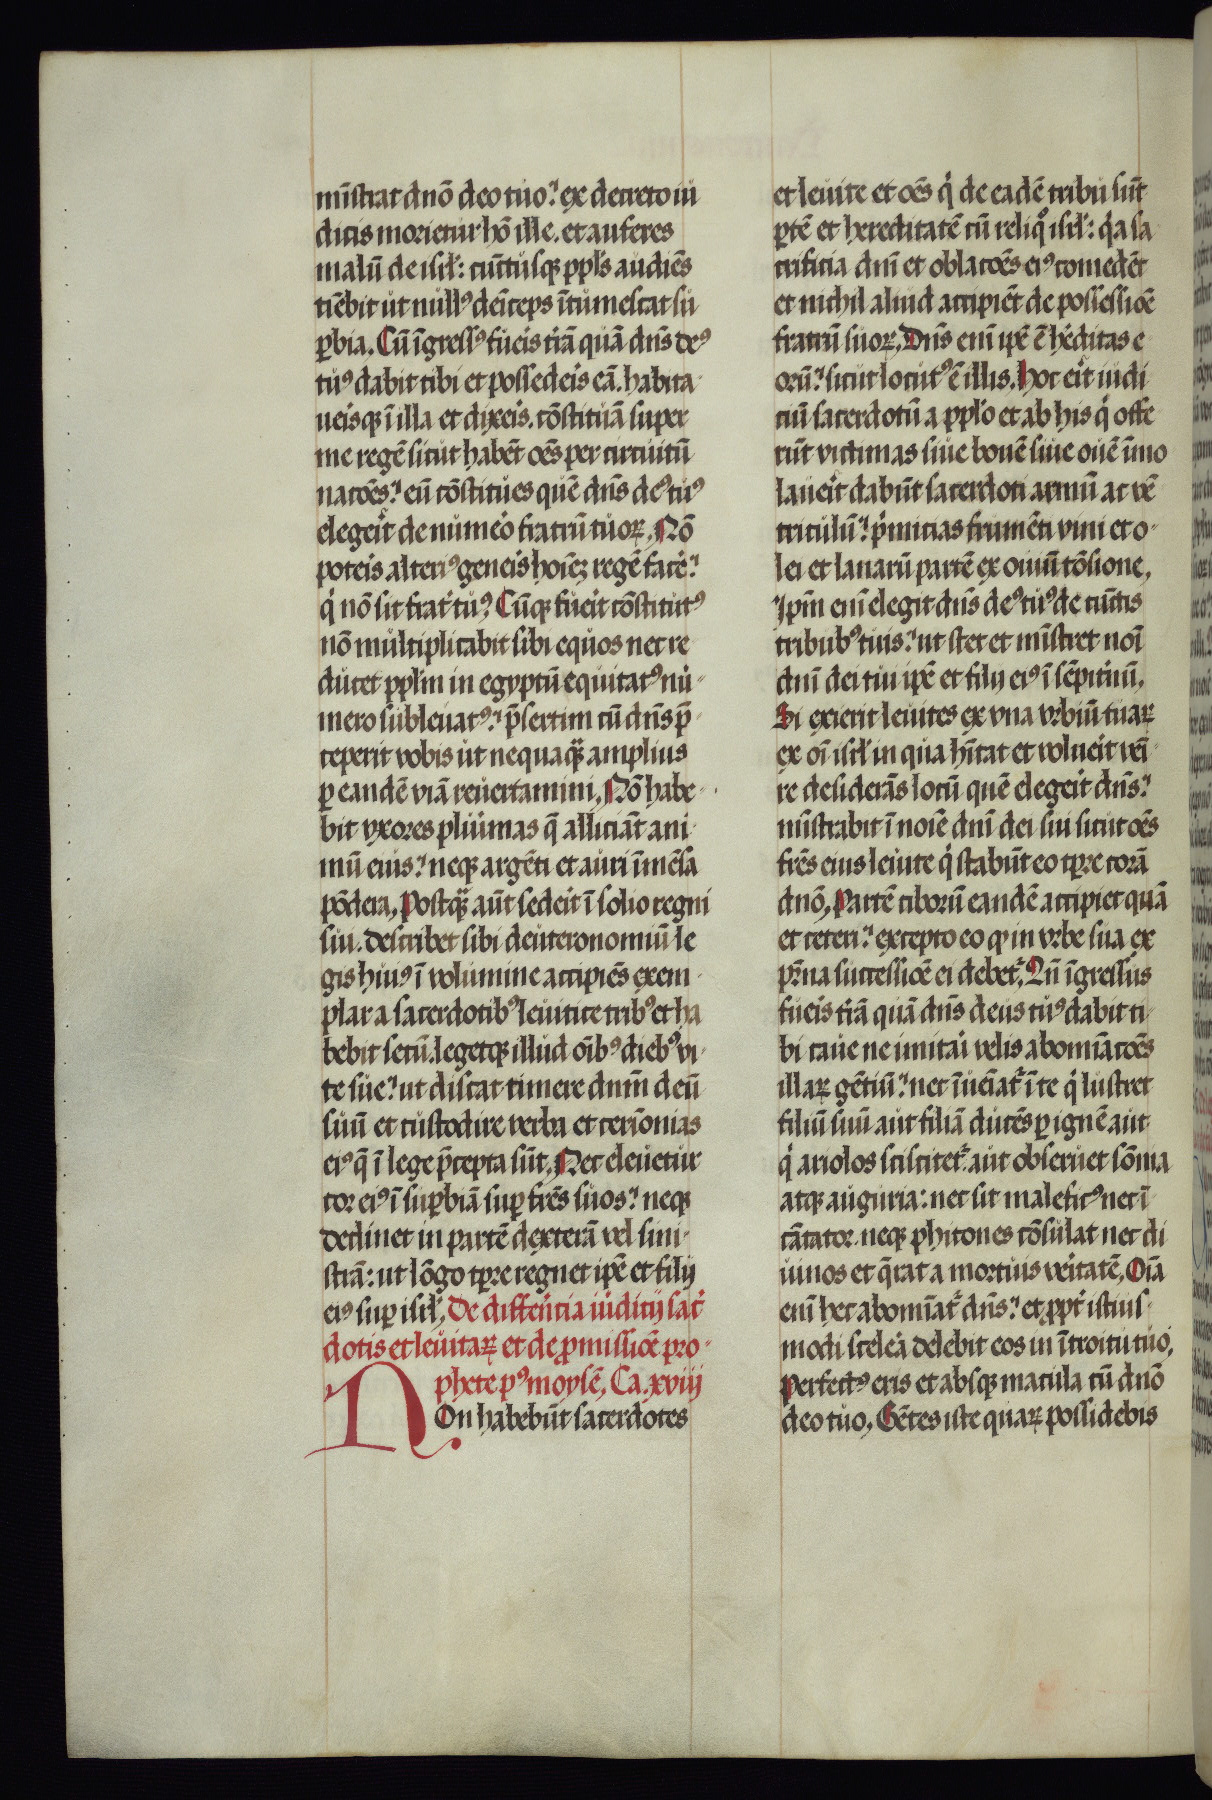 mīstrat dnō deo tuo? ex decreto iu
dicis morietur hō ille. et auferes
malū de isrl': cūctusq; ppl's audiēs
tīebit ut null9 deīceps ītumescat su
ꝑbia. Cū īgress9 fueis tr̄ā quā dn̄s de9
tu9 dabit tibi et possedeis eā. habita
ueisq; ī illa et dixeis. cōstituā super
me regē sicut habēt oēs per circuitū
nacōes? eū cōstitues quē dn̄s de9 tu9
elegeit de numeo fratrū tuoꝝ, Nō
poteis alteri9 geneis hoīez regē facē?
q' nō sit frat' tu9, Cūq; fueit cōstitut9
nō multiplicabit sibi equos nec re
ducet ppl'm in egyptū equitat9 nu-
mero subleuat9? p̄sertim cū dn̄s p̄-
ceperit vobis ut nequaq̄ amplius
ꝑ eandē viā reuertamini, Nō habe-
bit vxores pl'imas q̄ alliciāt ani
mū eius? neq; argēti et auri īmēsa
pōdera, Postq̄ aūt sedeit ī solio regni
sui. describet sibi deuteronomiū le
gis hui9 ī volumine accipiēs exem-
plar a sacerdotib9 leuitice trib9 et ha
bebit secū. legetq; illud oīb9 dieb9 vi-
te sue? ut discat timere dnm̄ deū
suū et custodire verba et cerīonias
ei9 q̄ ī lege p̄cepta sūt, Nec eleuetur
cor ei9 ī suꝑbiā suꝑ frēs suos? neq;
declinet in partē dexterā vel sini-
strā: ut lōgo tp̄re regnet ipē et filij
ei9 suꝑ isrl', De differ̄tia iuditij sac'
dotis et leuitaꝝ et de ꝓmissiōe pro-
phete p9 moysē, Ca. xviij
NOn habebūt sacerdotes
et leuite et oēs q' de eadē tribu sūt
ꝑtē et hereditatē cū reliq° isrl': q'a sa
crificia dnī et oblacōes ei9 comedēt
et nichil aliud accipiēt de possessiōe
fratrū suoꝝ, Dn̄s enī ipē ē h'editas e
orū? sicut locut9 ē illis, Hoc eit iudi
ciū sacerdotū a ppl'o et ab his q' offe
rūt victimas siue bouē siue ouē īmo
laueit dabūt sacerdoti armū ac vē
triculū? p'mitias frumēti vini et o-
lei et lanarū partē ex ouiū tōsione,
Ipm̄ enī elegit dn̄s de9 tu9 de cūctis
tribub9 tuis? ut stet et mīstret noī
dnī dei tui ipē et filij ei9 ī sēpit'nū,
Si exierit leuites ex vna vrbiū tuaꝝ
ex oī isrl' in qua hītat et volueit veī-
re desiderās locū quē elegeit dn̄s?
mīstrabit ī noīe dnī dei sui sicut oēs
frēs eius leuite q' stabūt eo tp̄re corā
dnō, Partē ciborū eandē accipiet quā
et ceteri? excepto eo qꝫ in vrbe sua ex
pr̄na successiōe ei debet', Qn̄ īgressus
fueis tr̄ā quā dn̄s deus tu9 dabit ti-
bi caue ne imitai velis abomīacōes
illaꝝ gētiū? nec īueīat' ī te q' lustret
filiū suū aut filiā ducēs ꝑ ignē aut
q' ariolos sciscitet'. aut obseruet sōnia
atq; auguria: nec sit malefic9 nec ī
cātator. neq; phitones cōsulat nec di
uinos et q̄rat a mortuis veitatē, Oīā
enī hec abomīat' dn̄s? et ꝓpt' istius-
modi scelea delebit eos in ītroitu tuo,
Perfect9 eris et absq; macula cū dnō
deo tuo, Gētes iste quaꝝ possidebis